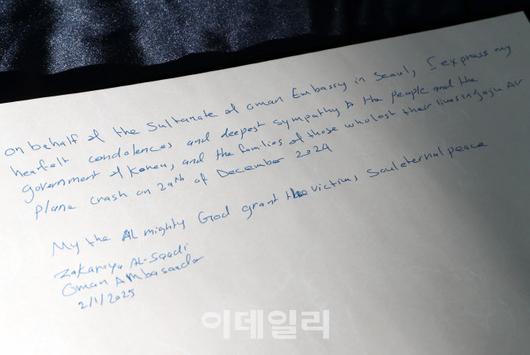 On behalf of the Sultanate of Oman Embassy in Seoul, I express my
heartfelt condolences and deepest sympathy to the people and the
government of Korea, and the families of those who lost their lives in Jeju Air
Plane crash on 29th of December 2024
My the Al mighty God grant the victims Soul eternal peace
Zakariya AL-Saadi
Oman Ambassador
2/1/2025
이데일리